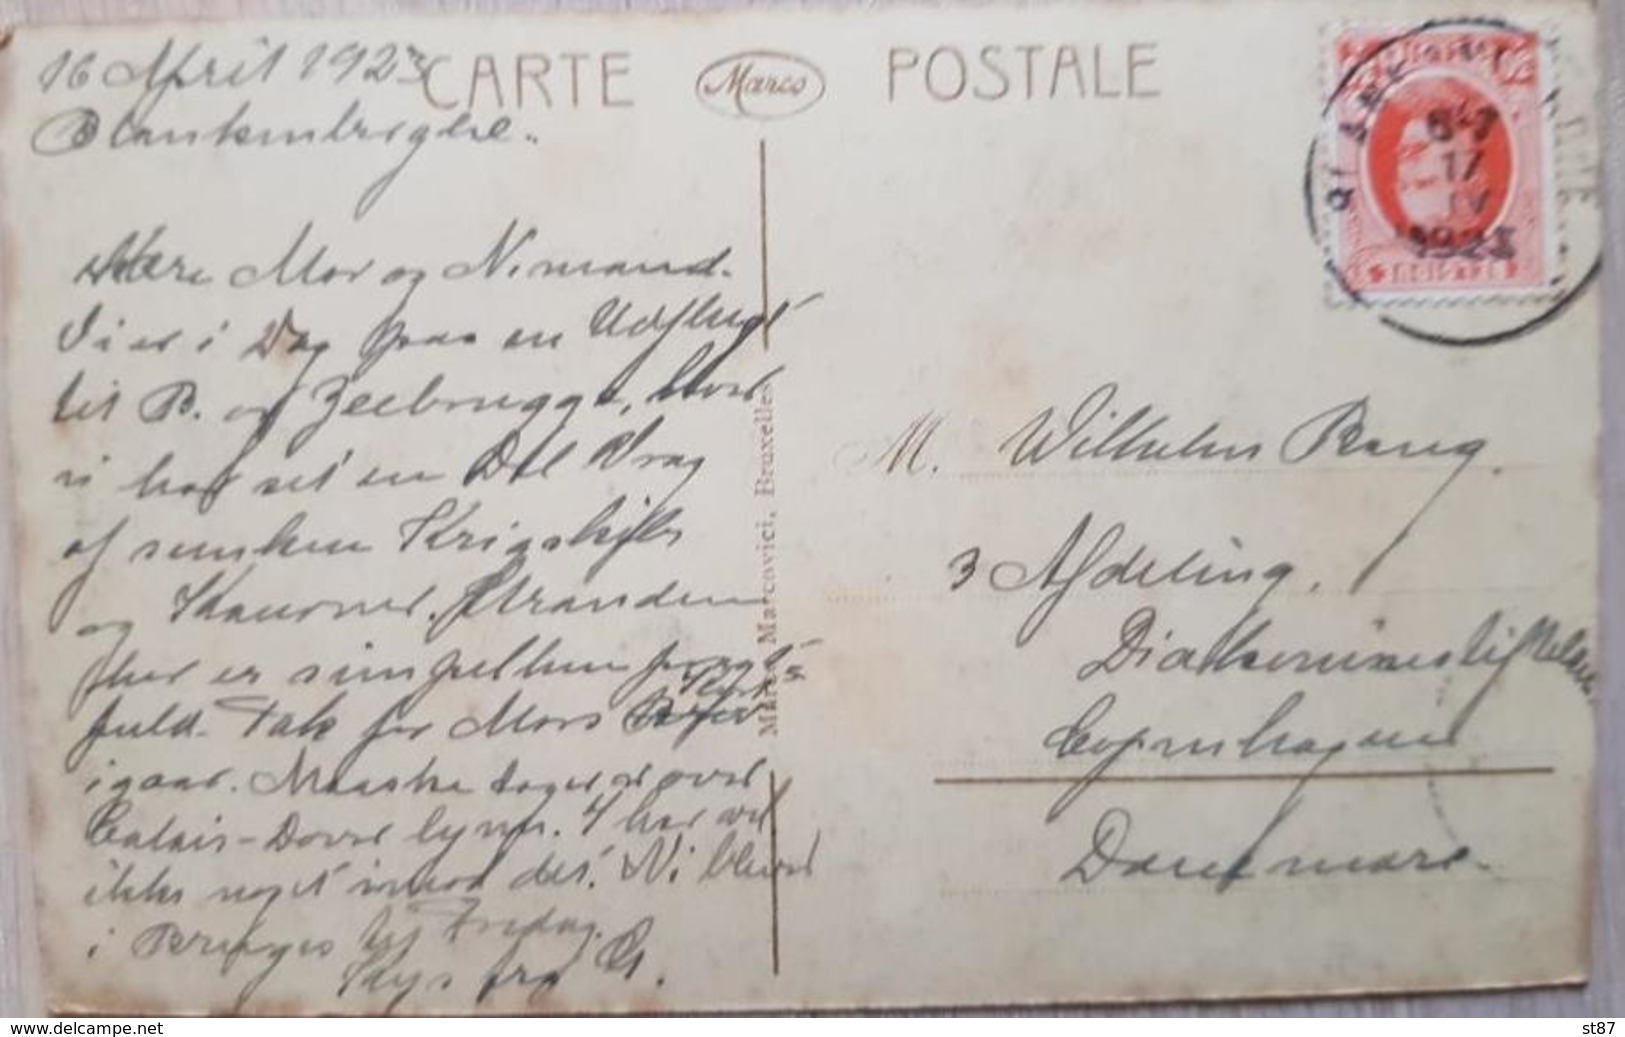 16 April 1923
Blankenberghe.
CARTE Marco POSTALE
Kære Mor og Nimand.
Vi er i Dag paa en Udflugt
til B. og Zeebrugge, hvor
vi har set en Del Vrag
af sunkne Krigsskibe
og Kanoner. Stranden
her er simpelthen pragt-
fuld. Tak for Mors Kort
igaar. Maaske tager vi over
Calais-Dover hjem. I har vel
ikke noget imod det. Vi bliver
i Brügges til Fredag.
Kys fra G.
Marcovici, Bruxelles
BLANK
6-7
17
IV
1923
M. Wilhelm Bang.
3 Afdeling.
Diakonissestiftelsen
Copenhague
Danemarc.
delcampe.net
st87